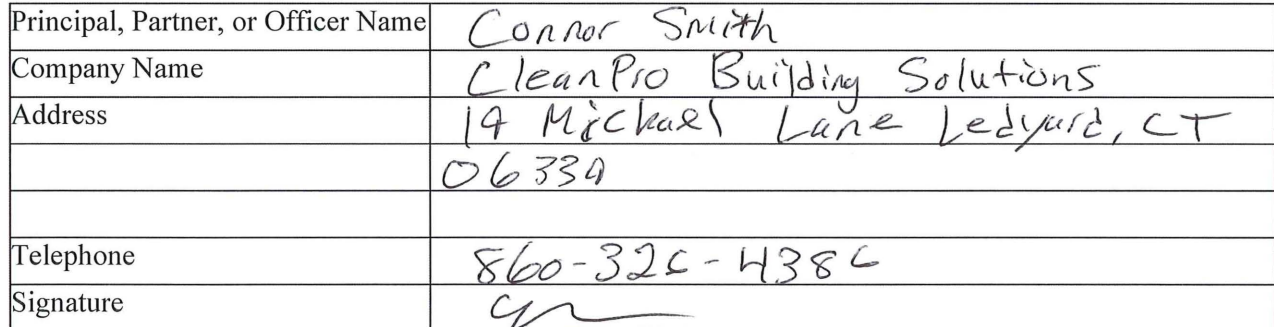 Principal, Partner, or Officer Name Connor Smith
Company Name CleanPro Building Solutions
Address 19 Michael Lane Ledyard, CT
06339
Telephone 860-326-4386
Signature